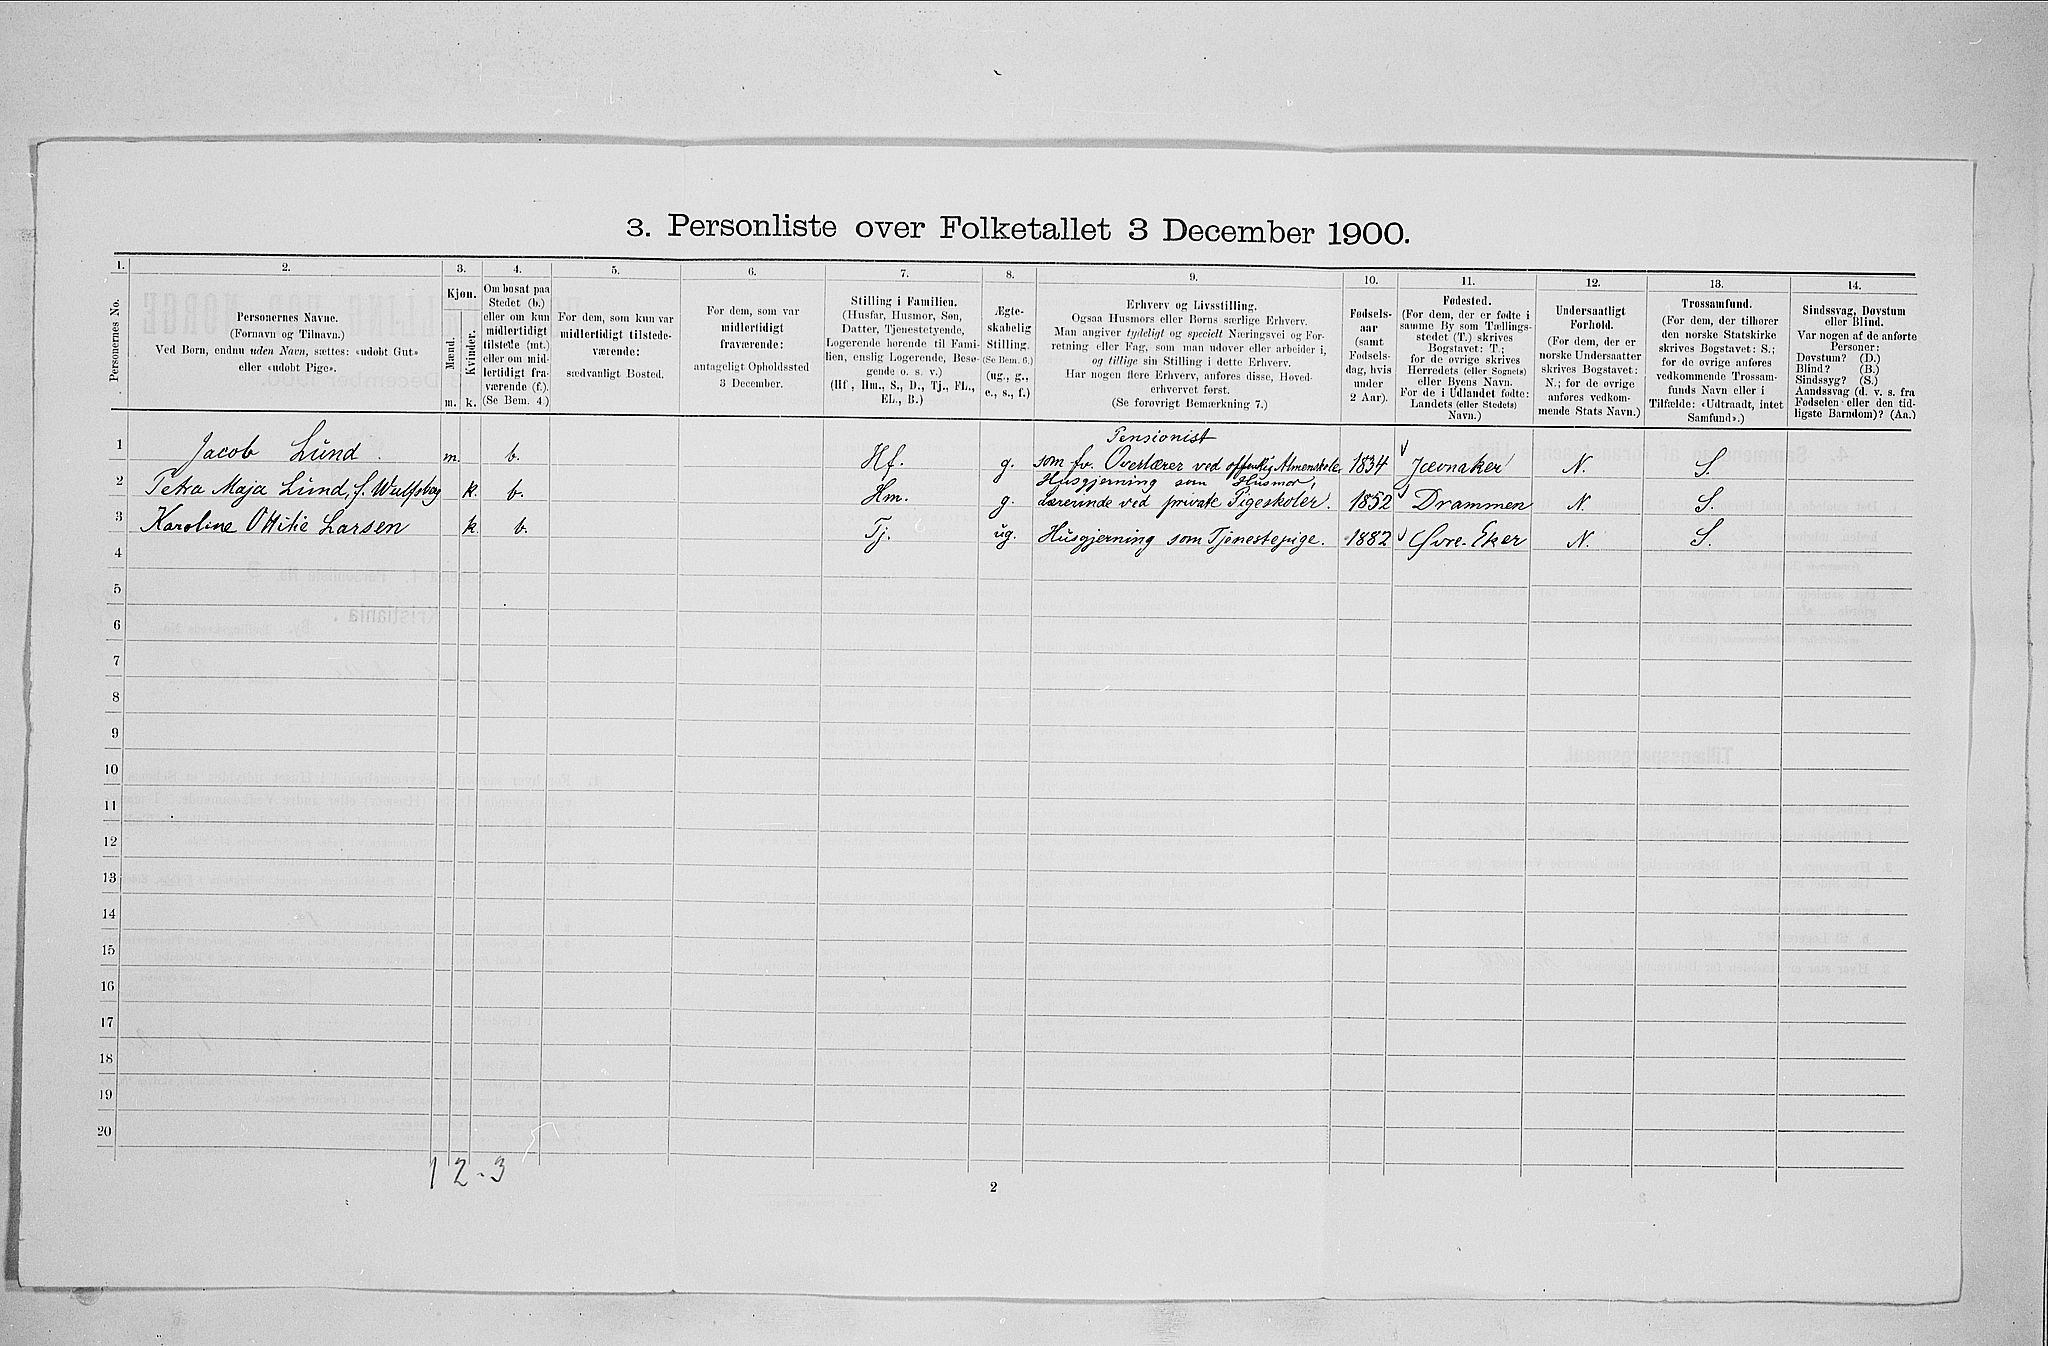 3. Personliste over Folketallet 3 December 1900.
1. 2. 3. 4. 5. 6. 7. 8. 9. 10. 11. 12. 13. 14.
Personernes No.
Personernes Navne.
(Fornavn og Tilnavn.)
Ved Børn, endnu uden Navn, sættes: «udøbt Gut»
eller «udøbt Pige».
Kjøn.
Mænd. Kvinder.
m. k.
Om bosat paa
Stedet (b.)
eller om kun
midlertidigt
tilstede (mt.)
eller om mid-
lertidigt fra-
værende (f.).
(Se Bem. 4.)
For dem, som kun var
midlertidigt tilstede-
værende:
sædvanligt Bosted.
For dem, som var
midlertidigt
fraværende:
antageligt Opholdssted
3 December.
Stilling i Familien.
(Husfar, Husmor, Søn,
Datter, Tjenestetyende,
Logerende hørende til Fami-
lien, enslig Logerende, Besø-
gende o. s. v.)
(Hf., Hm., S., D., Tj., FL.,
EL., B.)
Ægte-
skabelig
Stilling.
(Se Bem. 6.)
(ug., g.,
e., s., f.)
Erhverv og Livsstilling.
Ogsaa Husmors eller Børns særlige Erhverv.
Man angiver tydeligt og specielt Næringsvei og For-
retning eller Fag, som man udøver eller arbeider i,
og tillige sin Stilling i dette Erhverv.
Har nogen flere Erhverv, anføres disse, Hoved-
erhvervet først.
(Se forøvrigt Bemærkning 7.)
Fødsels-
aar
(samt
Fødsels-
dag, hvis
under
2 Aar).
Fødested.
(For dem, der er fødte i
samme By som Tællings-
stedet (T.) skrives
Bogstavet: T.;
for de øvrige skrives
Herredets (eller Sognets)
eller Byens Navn.
For de i Udlandet fødte:
Landets (eller Stedets)
Navn.)
Undersaatligt
Forhold.
(For dem, der er
norske Undersaatter
skrives Bogstavet:
N.; for de øvrige
anføres vedkom-
mende Stats Navn.)
Trossamfund.
(For dem, der tilhører
den norske Statskirke
skrives Bogstavet: S.;
for de øvrige anføres
vedkommende Trossam-
funds Navn eller i
Tilfælde: «Udtraadt, intet
Samfund».)
Sindssvag, Døvstum
eller Blind.
Var nogen af de anførte
Personer:
Døvstum? (D.)
Blind? (B.)
Sindssyg? (S.)
Aandssvag (d. v. s. fra
Fødselen eller den tid-
ligste Barndom)? (Aa.)
Pensionist
1 Jacob Lund. m. b. Hf. g. som fv. Overlærer ved offentlig Almenskole. 1834 Jævnaker N. S.
Husgjerning som Husmor,
2 Petra Maja Lund, f. Wulfsberg k. b. Hm. g. Lærerinde ved private Pigeskoler. 1852 Drammen N. S.
3 Karoline Ottilie Larsen k. b. Tj. ug. Husgjerning som Tjenestepige. 1882 Øvre-Eker N. S.
4
5
6
7
8
9
10
11
12
13
14
15
16
17
18
19
20
1 2 - 3
2